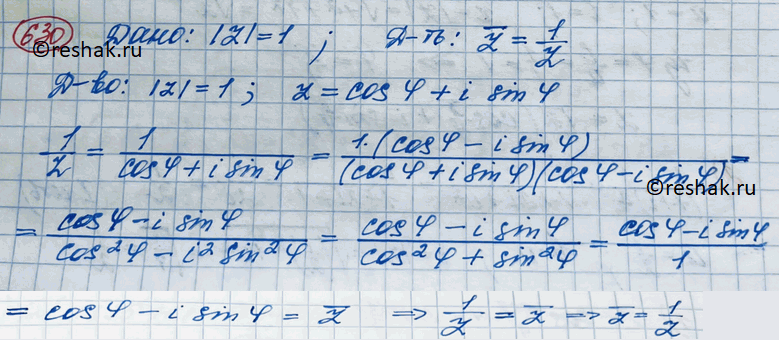 630 Дано: |z|=1 ; Д-ть: z̅ = 1/z
©reshak.ru
Д-во: |z|=1; z = cos φ + i sin φ
1/z = 1/(cos φ + i sin φ) = 1·(cos φ - i sin φ)/((cos φ + i sin φ)(cos φ - i sin φ)) =
©reshak.ru
= (cos φ - i sin φ)/(cos²φ - i² sin²φ) = (cos φ - i sin φ)/(cos²φ + sin²φ) = (cos φ - i sin φ)/1
= cos φ - i sin φ = z̅ ⇒ 1/z = z̅ ⇒ z̅ = 1/z